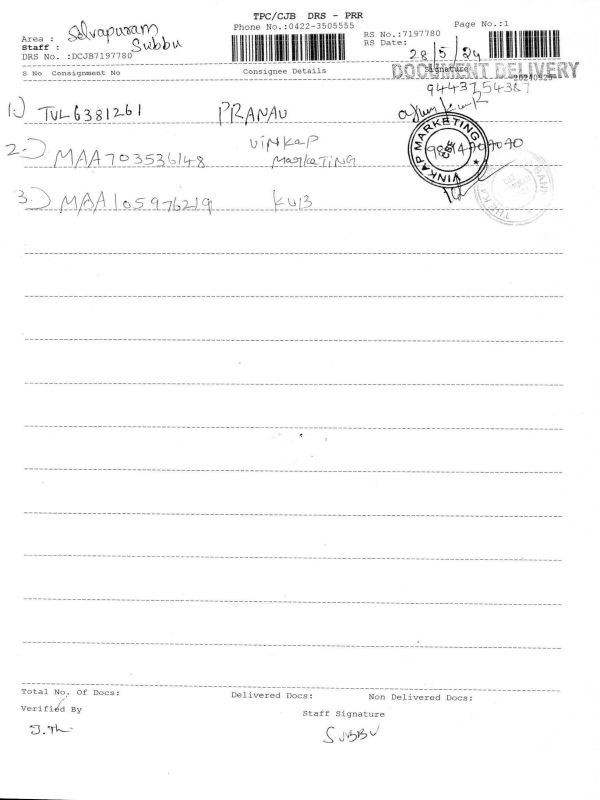 TPC/CJB DRS - PRR
Phone No.:0422-3505555
Page No.:1
Area : Selvapuram
Staff : Subbu
DRS No. :DCJB7197780
RS No.:7197780
RS Date: 28/5/24
S No Consignment No Consignee Details Signature
DOCUMENT DELIVERY
20240529
9443754387
1.) TVL6381261 PRANAV
2.) MAA703536148 VINKAP
MARKETING
VINKAP MARKETING
CBE
3.) MAA105976219 KVB
Total No. Of Docs: Delivered Docs: Non Delivered Docs:
Verified By
Staff Signature
SUBBU